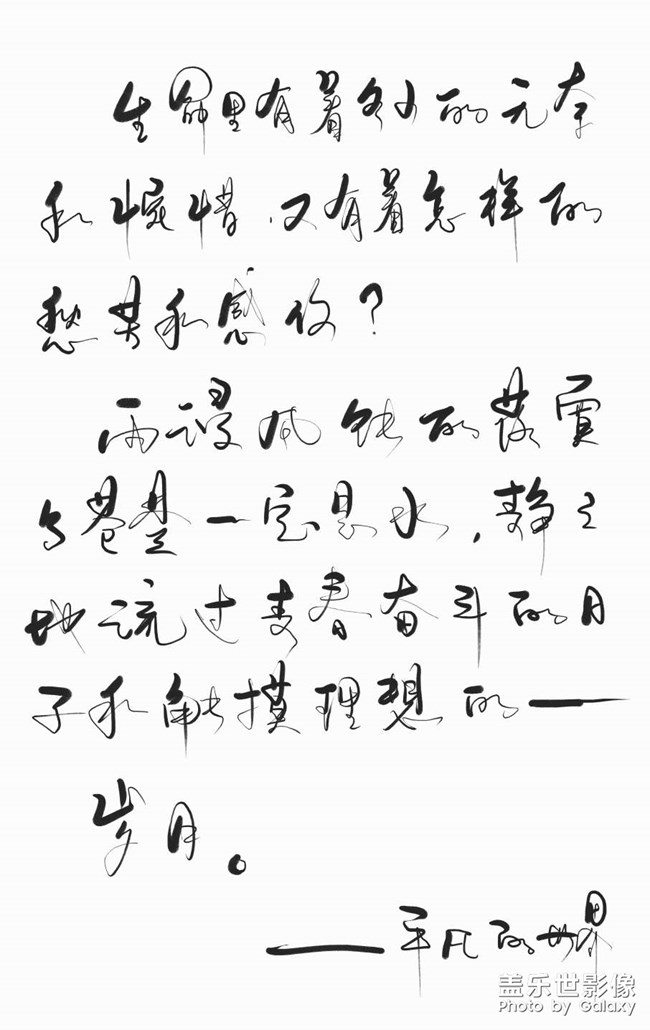 生命里有着多少的无奈
和惋惜,又有着怎样的
愁苦和感伤?
雨浸风蚀的落寞
与苍楚一定是水,静静
地流过青春奋斗的日
子和触摸理想的——
岁月。
——平凡的世界
盖乐世影像
Photo by Galaxy